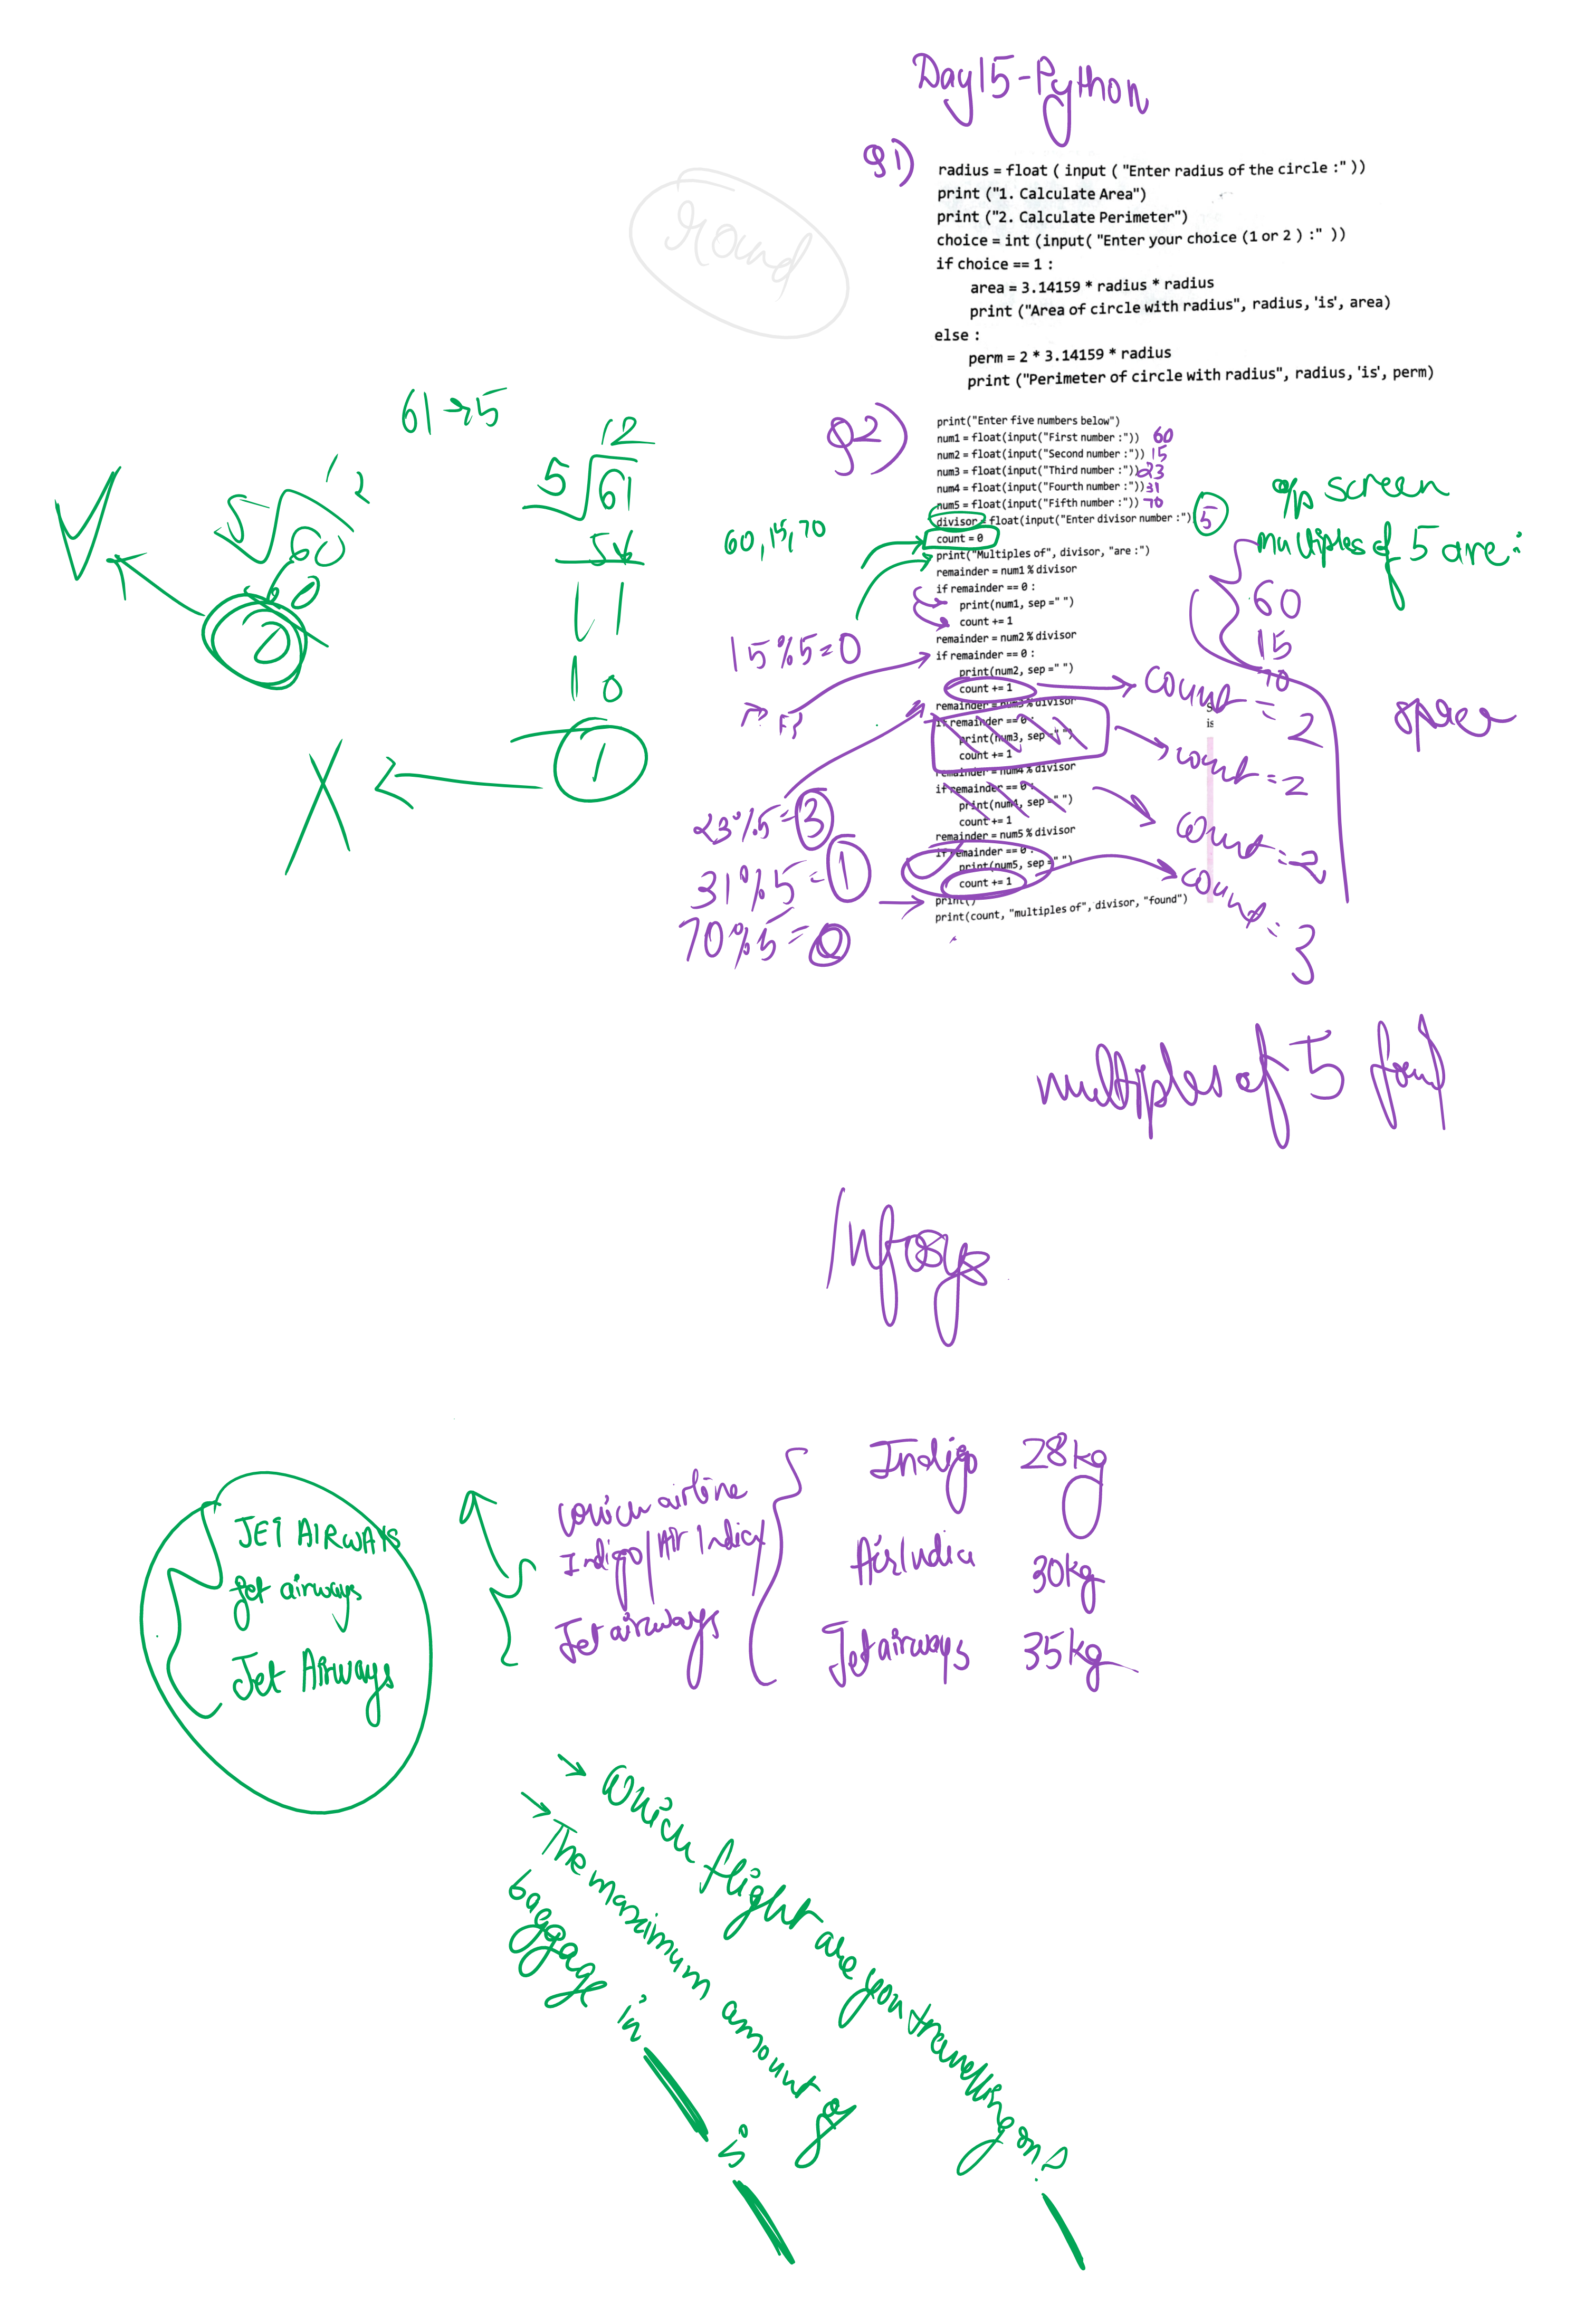 Day15-Python
round
Q1)
radius = float ( input ( "Enter radius of the circle :" ))
print ("1. Calculate Area")
print ("2. Calculate Perimeter")
choice = int (input( "Enter your choice (1 or 2 ) :" ))
if choice == 1 :
area = 3.14159 * radius * radius
print ("Area of circle with radius", radius, 'is', area)
else :
perm = 2 * 3.14159 * radius
print ("Perimeter of circle with radius", radius, 'is', perm)
61→5
12
5√61
11
10
1
12
5√60
60
0
Q2)
print("Enter five numbers below")
num1 = float(input("First number :")) 60
num2 = float(input("Second number :")) 15
num3 = float(input("Third number :")) 23
num4 = float(input("Fourth number :")) 31
num5 = float(input("Fifth number :")) 70
divisor = float(input("Enter divisor number :") 5
count = 0
print("Multiples of", divisor, "are :")
remainder = num1 % divisor
if remainder == 0 :
print(num1, sep =" ")
count += 1
remainder = num2 % divisor
if remainder == 0 :
print(num2, sep =" ")
count += 1
remainder = num3 % divisor
if remainder == 0 :
print(num3, sep =" ")
count += 1
remainder = num4 % divisor
if remainder == 0 :
print(num4, sep =" ")
count += 1
remainder = num5 % divisor
if remainder == 0 :
print(num5, sep =" ")
count += 1
print()
print(count, "multiples of", divisor, "found")
60, 15, 70
15%5=0
23%5=3
31%5=1
70%5=0
o/p screen
multiples of 5 are:
60
15
70
is
space
count = 2
count = 2
count = 2
count = 3
multiples of 5 found
Infosys
Indigo 28kg
Air India 30kg
Jet airways 35kg
which airline
Indigo/Air India/
Jet airways
JET AIRWAYS
jet airways
Jet Airways
→ Which flight are you travelling on?
→ The maximum amount of
baggage in
is